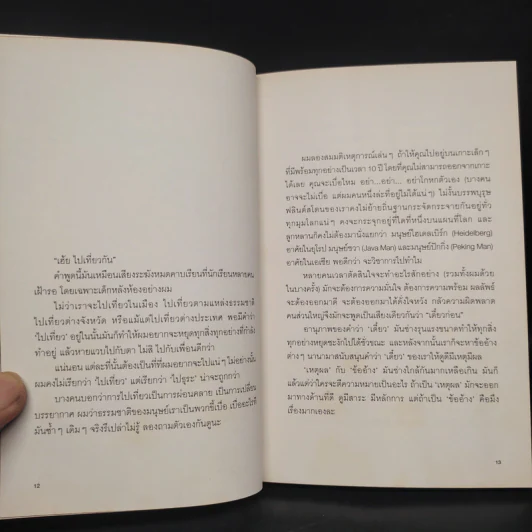 "เฮ้ย ไปเที่ยวกัน"
คำพูดนี้มันเหมือนเสียงระฆังหมดคาบเรียนที่นักเรียนหลายคน
เฝ้ารอ โดยเฉพาะเด็กหลังห้องอย่างผม
ไม่ว่าเราจะไปเที่ยวในเมือง ไปเที่ยวตามแหล่งธรรมชาติ
ไปเที่ยวต่างจังหวัด หรือแม้แต่ไปเที่ยวต่างประเทศ พอมีคำว่า
'ไปเที่ยว' อยู่ในนั้นมันก็ทำให้ผมอยากจะหยุดทุกสิ่งทุกอย่างที่กำลัง
ทำอยู่ แล้วหายแวบไปกับตา ไม่สิ ไปกับเพื่อนดีกว่า
แน่นอน แต่ละที่นั้นต้องเป็นที่ที่ผมอยากจะไปแน่ๆ ไม่อย่างนั้น
ผมคงไม่เรียกว่า 'ไปเที่ยว' แต่เรียกว่า 'ไปธุระ' น่าจะถูกกว่า
บางคนบอกว่าการไปเที่ยวเป็นการผ่อนคลาย เป็นการเปลี่ยน
บรรยากาศ ผมว่าธรรมชาติของมนุษย์เราเป็นพวกขี้เบื่อ เบื่ออะไรที่
มันซ้ำๆ เดิมๆ จริงรึเปล่าไม่รู้ ลองถามตัวเองกันดูนะ
12
ผมลองสมมติเหตุการณ์เล่นๆ ถ้าให้คุณไปอยู่บนเกาะเล็กๆ
ที่มีพร้อมทุกอย่างเป็นเวลา 10 ปี โดยที่คุณไม่สามารถออกจากเกาะ
ได้เลย คุณจะเบื่อไหม อย่า...อย่า... อย่าโกหกตัวเอง (บางคน
อาจจะไม่เบื่อ แต่ผมคนหนึ่งล่ะที่อยู่ไม่ได้แน่ๆ) ไม่งั้นบรรพบุรุษ
ต้นสโตนของเราคงไม่ย้ายถิ่นฐานกระจัดกระจายกันอยู่ทั่ว
ทุกมุมโลกแน่ๆ คงจะกระจุกอยู่ที่ใดที่หนึ่งบนผืนที่โลก และ
ลูกหลานก็คงไม่ต้องมานั่งแยกว่า มนุษย์ไฮเดลเบิร์ก (Heidelberg)
อาศัยในยุโรป มนุษย์ชวา (Java Man) และมนุษย์ปักกิ่ง (Peking Man)
อาศัยในเอเชีย พอดีกว่า จะวิชาการไปทำไม
หลายคนเวลาตัดสินใจจะทำอะไรสักอย่าง (รวมทั้งผมด้วย
ในบางครั้ง) มักจะต้องการความมั่นใจ ต้องการความพร้อม ผลลัพธ์
จะต้องออกมาดี จะต้องออกมาได้ดั่งใจหวัง กลัวความผิดพลาด
คนส่วนใหญ่จึงมักจะพูดเป็นเสียงเดียวกันว่า "เดี๋ยวก่อน"
อานุภาพของคำว่า 'เดี๋ยว' มันช่างรุนแรงขนาดทำให้ทุกสิ่ง
ทุกอย่างหยุดชะงักไปได้ชั่วขณะ และหลังจากนั้นเราก็จะหาข้ออ้าง
ต่างๆ นานามาสนับสนุนคำว่า 'เดี๋ยว' ของเราให้ดูดีมีเหตุมีผล
'เหตุผล' กับ 'ข้ออ้าง' มันช่างใกล้กันมากเหลือเกิน มันก็
แล้วแต่ว่าใครจะตีความหมายเป็นอะไร ถ้าเป็น 'เหตุผล' มักจะออก
มาทางด้านที่ดี ดูมีสาระ มีหลักการ แต่ถ้าเป็น 'ข้ออ้าง' คือมีง
เรื่องมากเองละ
13